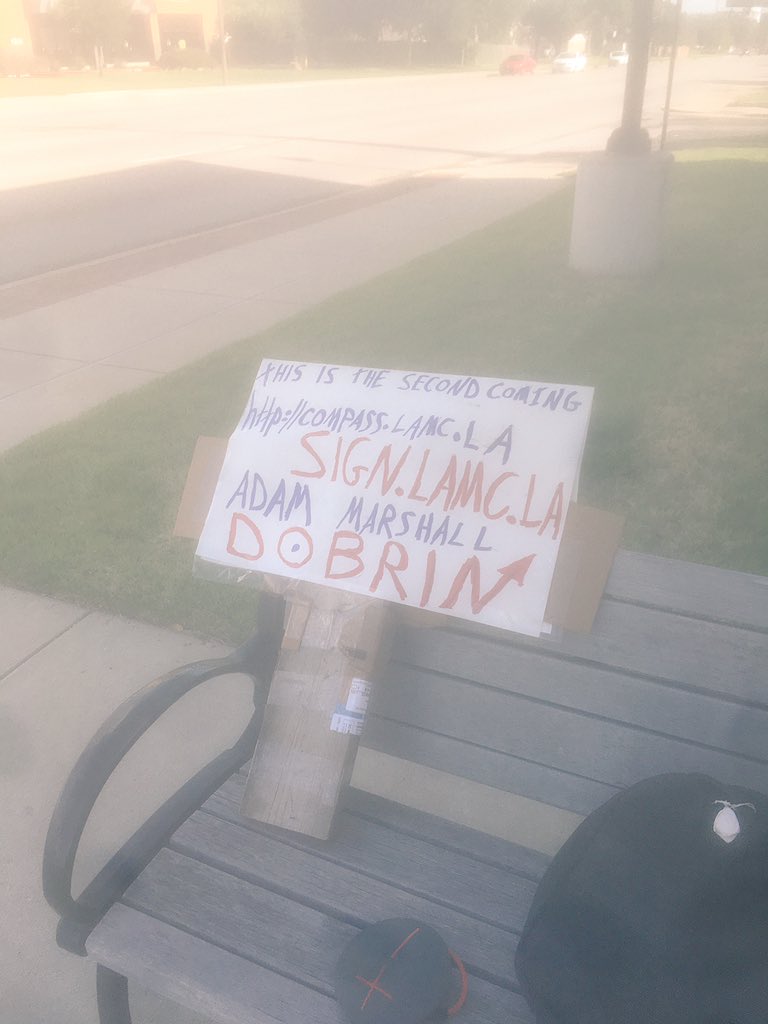 THIS IS THE SECOND COMING
http://COMPASS.LAMC.LA
SIGN.LAMC.LA
ADAM MARSHALL
DOBRIN